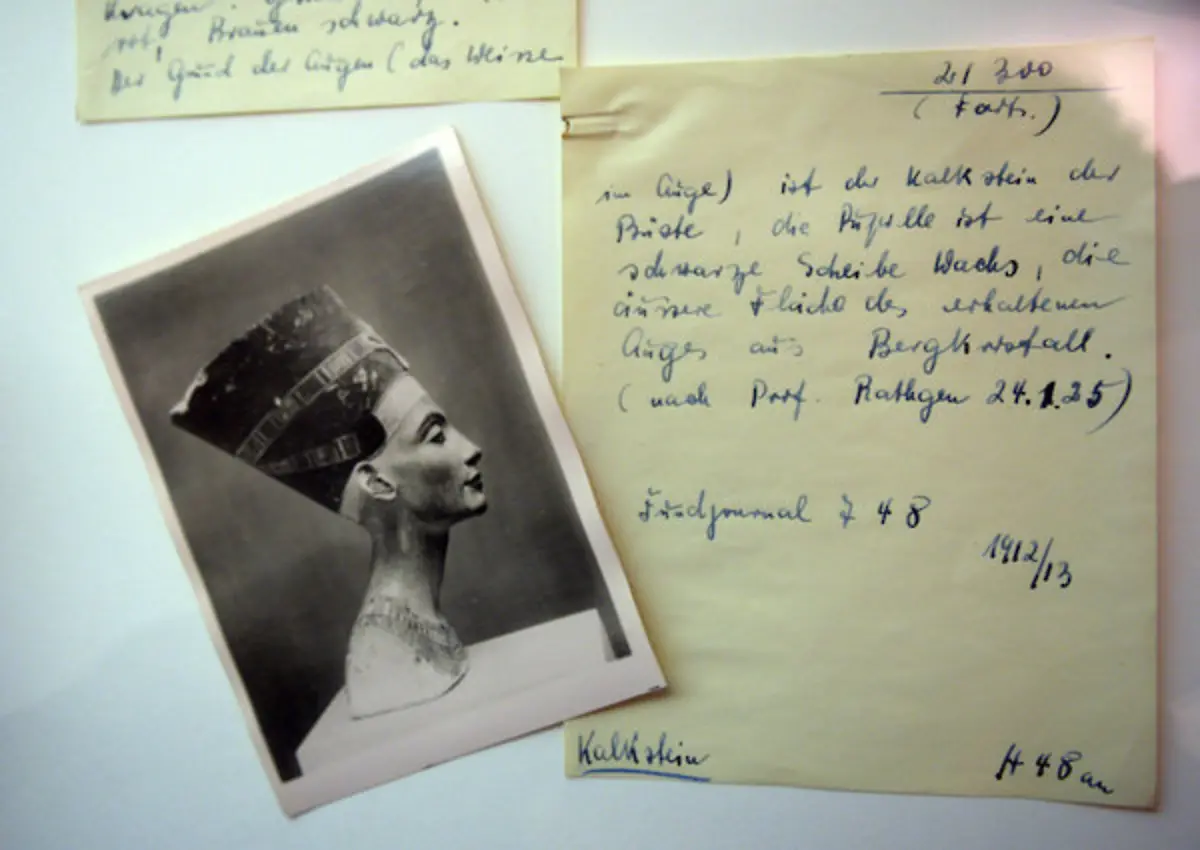 Kragen
rot! Brauen schwarz.
Der Grund der Augen (das Weisse
21 300
(Forts.)
im Auge) ist der Kalkstein der
Büste, die Pupille ist eine
schwarze Scheibe Wachs, die
äussere Fläche des erhaltenen
Auges aus Bergkristall.
(nach Prof. Rathgen 24.1.25)
Fundjournal 748
1912/13
Kalkstein
H 48 cm